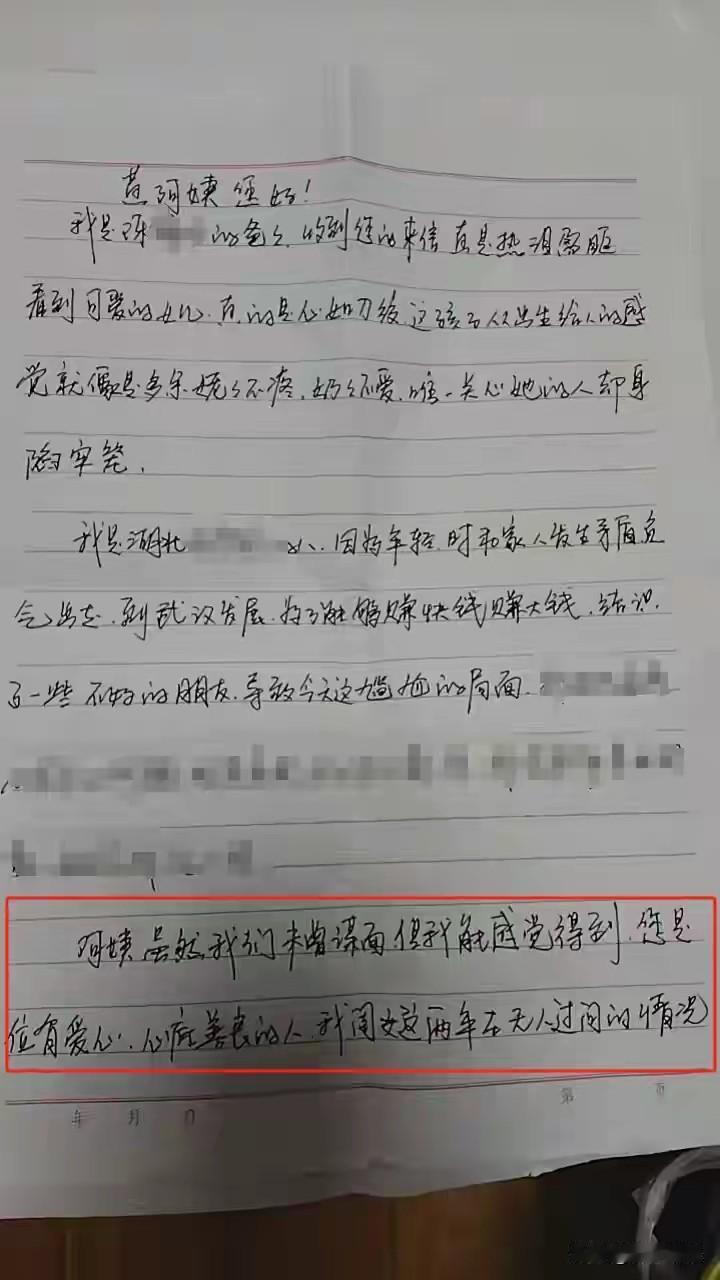 黄阿姨您好！
我是陈的爸爸，收到您的来信真是热泪盈眶
看到可爱的女儿，真的是心如刀绞，这孩子从出生给人的感
觉就像是多余，姥姥不疼，奶奶不爱，唯一关心她的人却身
陷牢笼，
我是湖北人，因为年轻时和家人发生矛盾负
气出走，到武汉发展，为了能够赚快钱赚大钱，结识
了一些不好的朋友，导致今天这尴尬的局面，
阿姨虽然我们未曾谋面但我能感觉得到，您是
位有爱心，心底善良的人，我闺女这两年在无人过问的情况
年 月 日
第 页